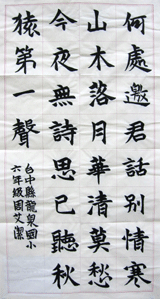 何處邀君話別情寒
山木落月華清莫愁
今夜無詩思已聽秋
猿第一聲
台中縣龍泉國小
六年級周艾潔